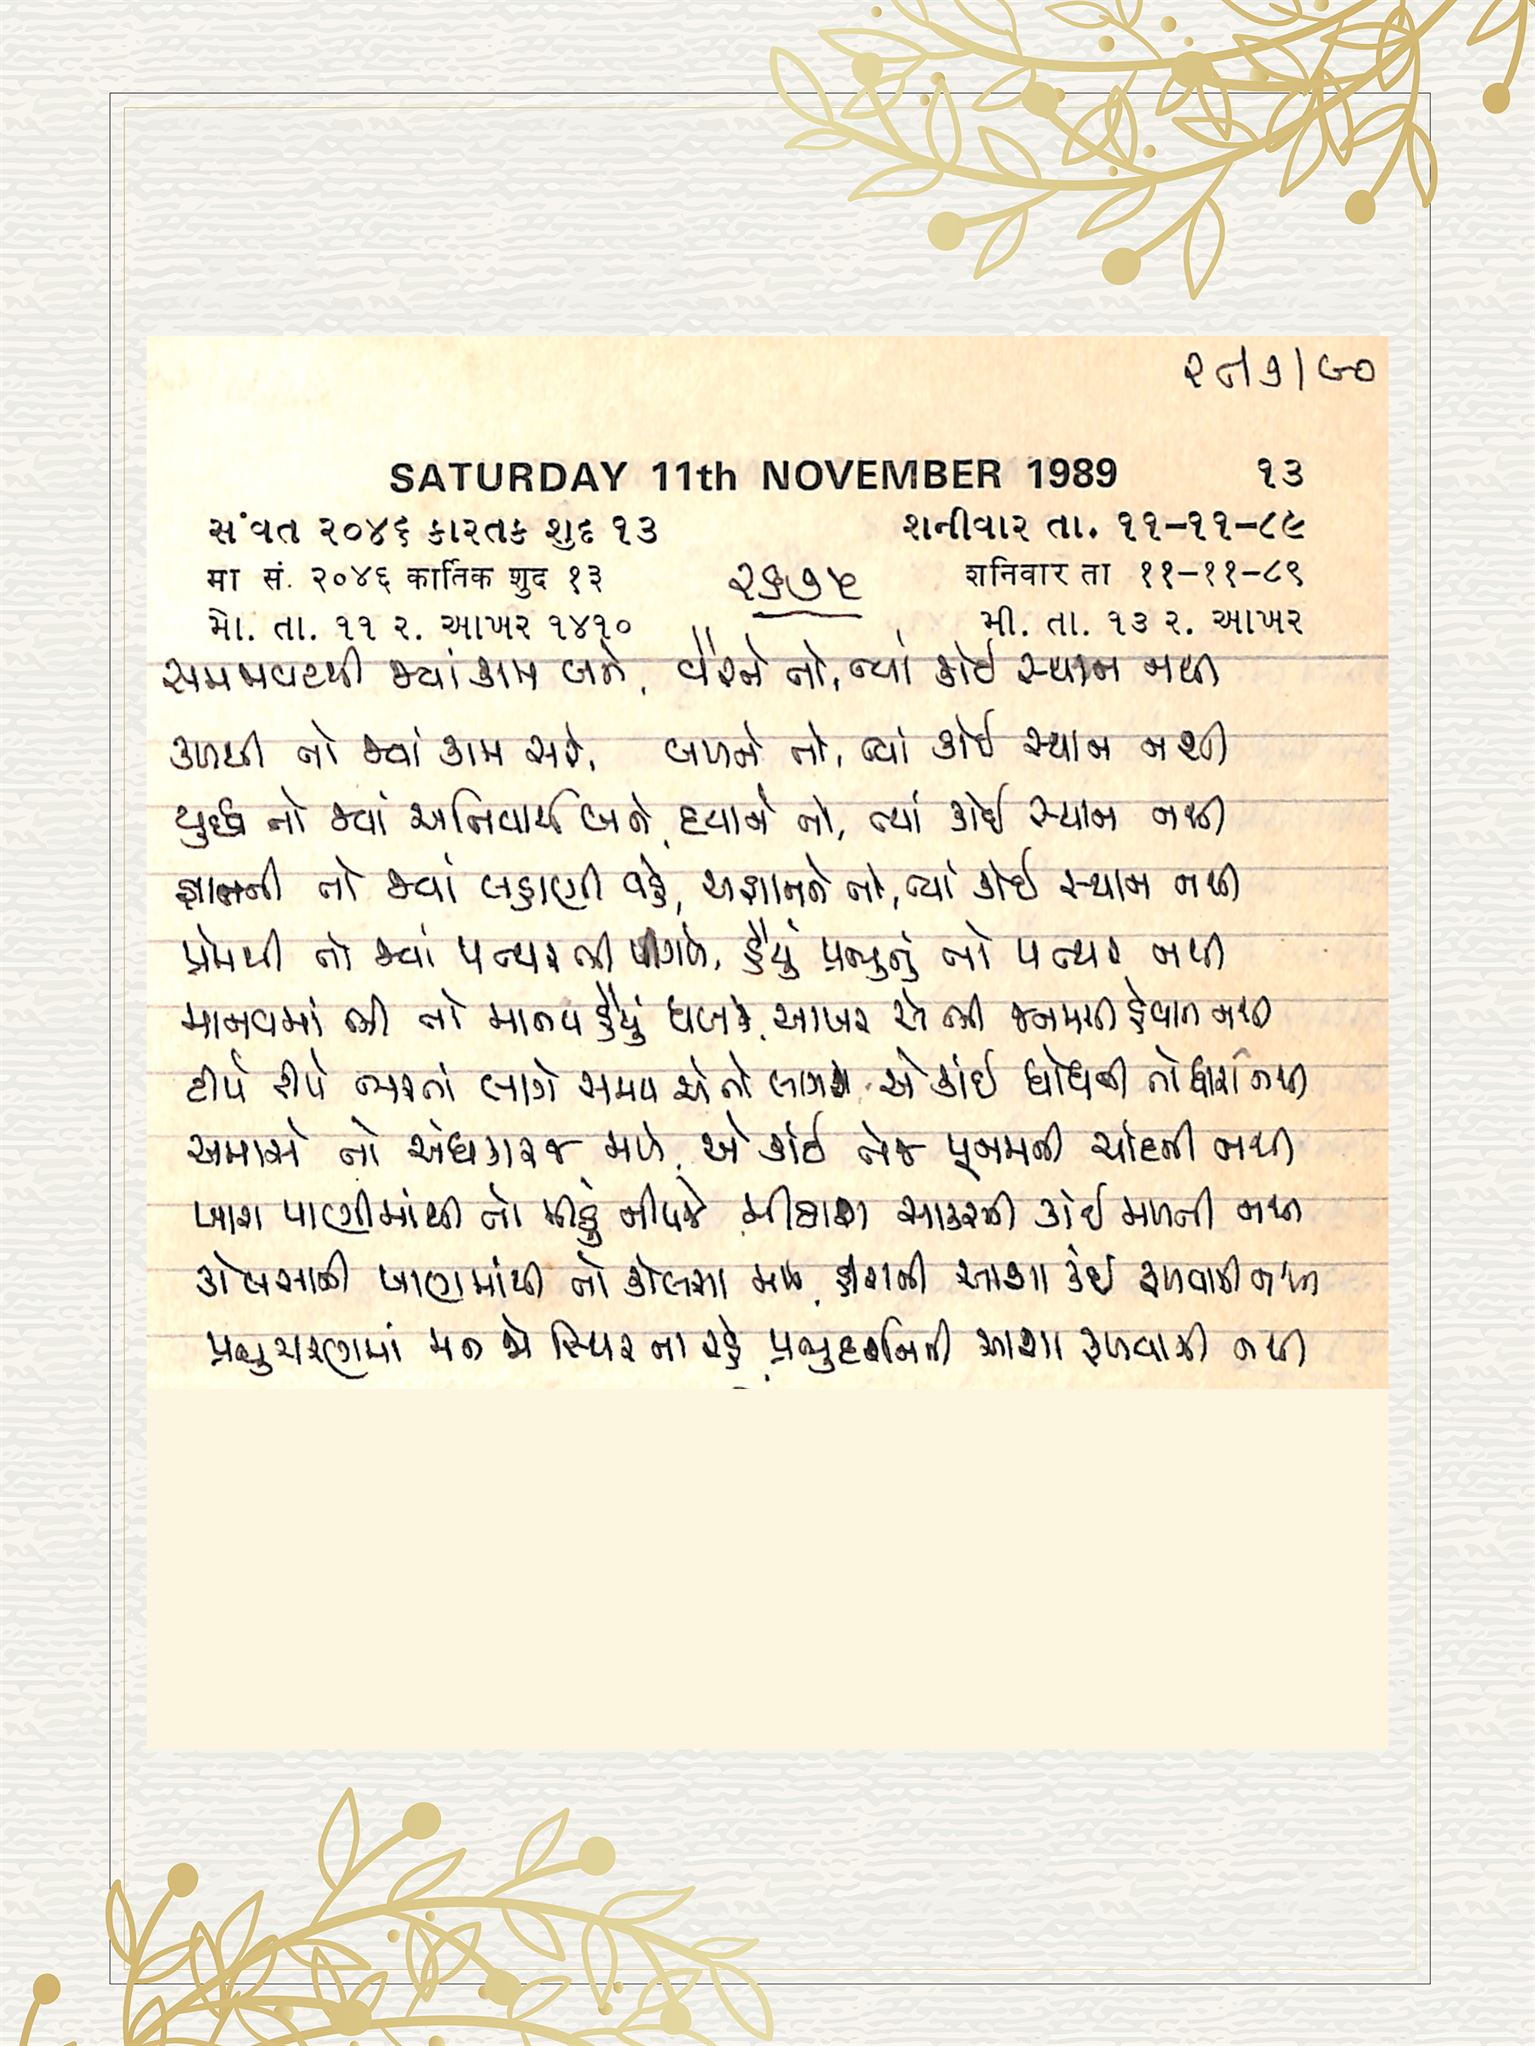 ૨ન૧/૯૦
SATURDAY 11th NOVEMBER 1989 ૧૩
સંવત ૨૦૪૬ કારતક શુદ ૧૩ શનીવાર તા. ૧૧–૧૧–૮૯
मा सं. २०४६ कार्तिक शुद १३ शनिवार ता ११–११–८९
મો. તા. ૧૧ ર. આખર ૧૪૧૦ મી. તા. ૧૩ ર. આખર
સમજાવટથી જ્યાં કામ બને, વૈરને તો, ત્યાં કોઈ સ્થાન નથી
કળથી તો જ્યાં કામ સરે, બળને તો, ત્યાં કોઈ સ્થાન નથી
યુદ્ધ તો જ્યાં અનિવાર્ય બને, દયાને તો, ત્યાં કોઈ સ્થાન નથી
જ્ઞાનની તો જ્યાં લહાણી વહે, અજ્ઞાનને તો, ત્યાં કોઈ સ્થાન નથી
પ્રેમથી તો જ્યાં પત્થર ભી પીગળે, હૈયું પ્રભુનું તો પત્થર નથી
માનવમાં ભી તો માનવ હૈયું ધબકે, આખર એ ભી જનમથી હેવાન નથી
ટીપે ટીપે ભરતાં લાગે સમય એ તો લાગશે, એ કાંઈ ધોધની તો ધારા નથી
અમાસે તો અંધકાર જ મળે, એ કાંઈ તેજ પૂનમની ચાંદની નથી
ખારા પાણીમાંથી તો મીઠું નીપજે મીઠાશ સાકરની કોઈ મળતી નથી
કોલસાની ખાણમાંથી તો કોલસા મળે, હીરાની આશા કંઈ ફળવાની નથી
પ્રભુચરણમાં મન જો સ્થિર ના રહે, પ્રભુદર્શનની આશા ફળવાની નથી